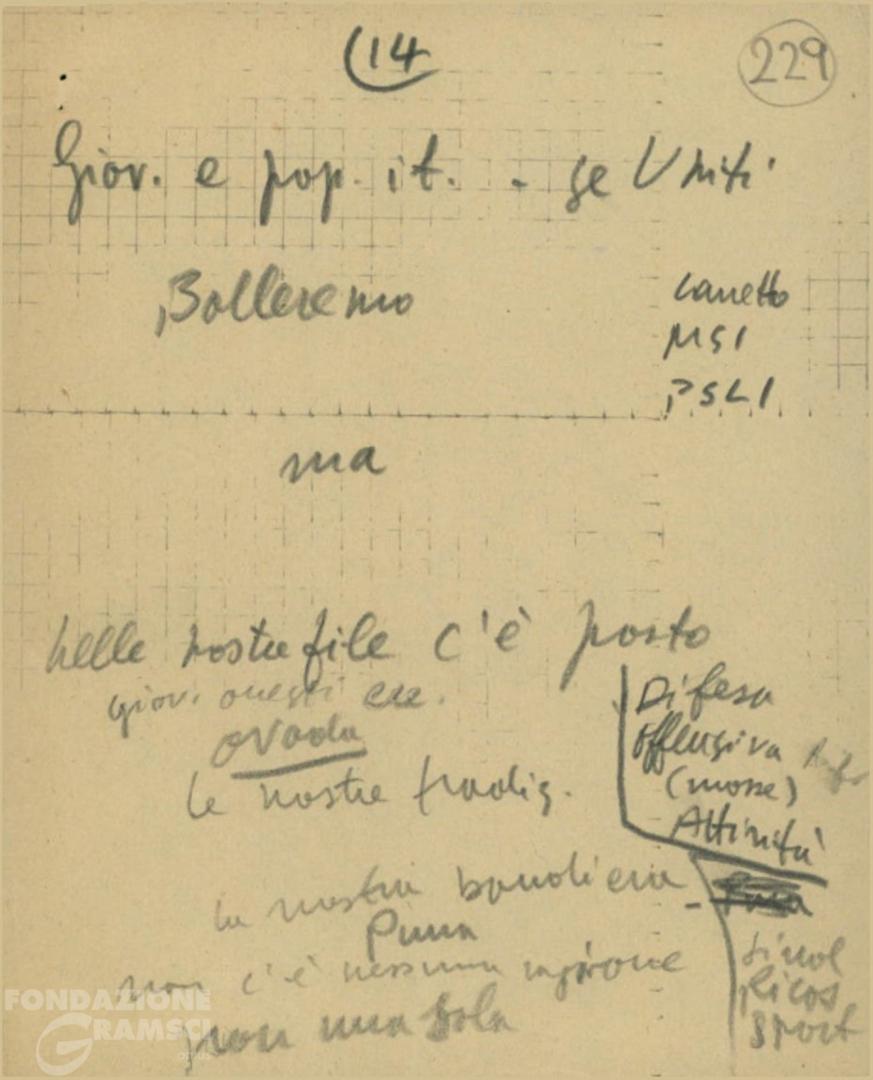 (14
229
Giov. e pop. it. - se Uniti
Balleremo
MSI
PSLI
ma
nelle nostre file c'è posto
giov. onesti ecc.
Ovada
le nostre tradiz.
Difesa
Offensiva
(mosse)
Attività
la nostra bandiera
Pura
non c'è nessuna ragione
non una sola
Ricos
Sport
FONDAZIONE
GRAMSCI
onlus